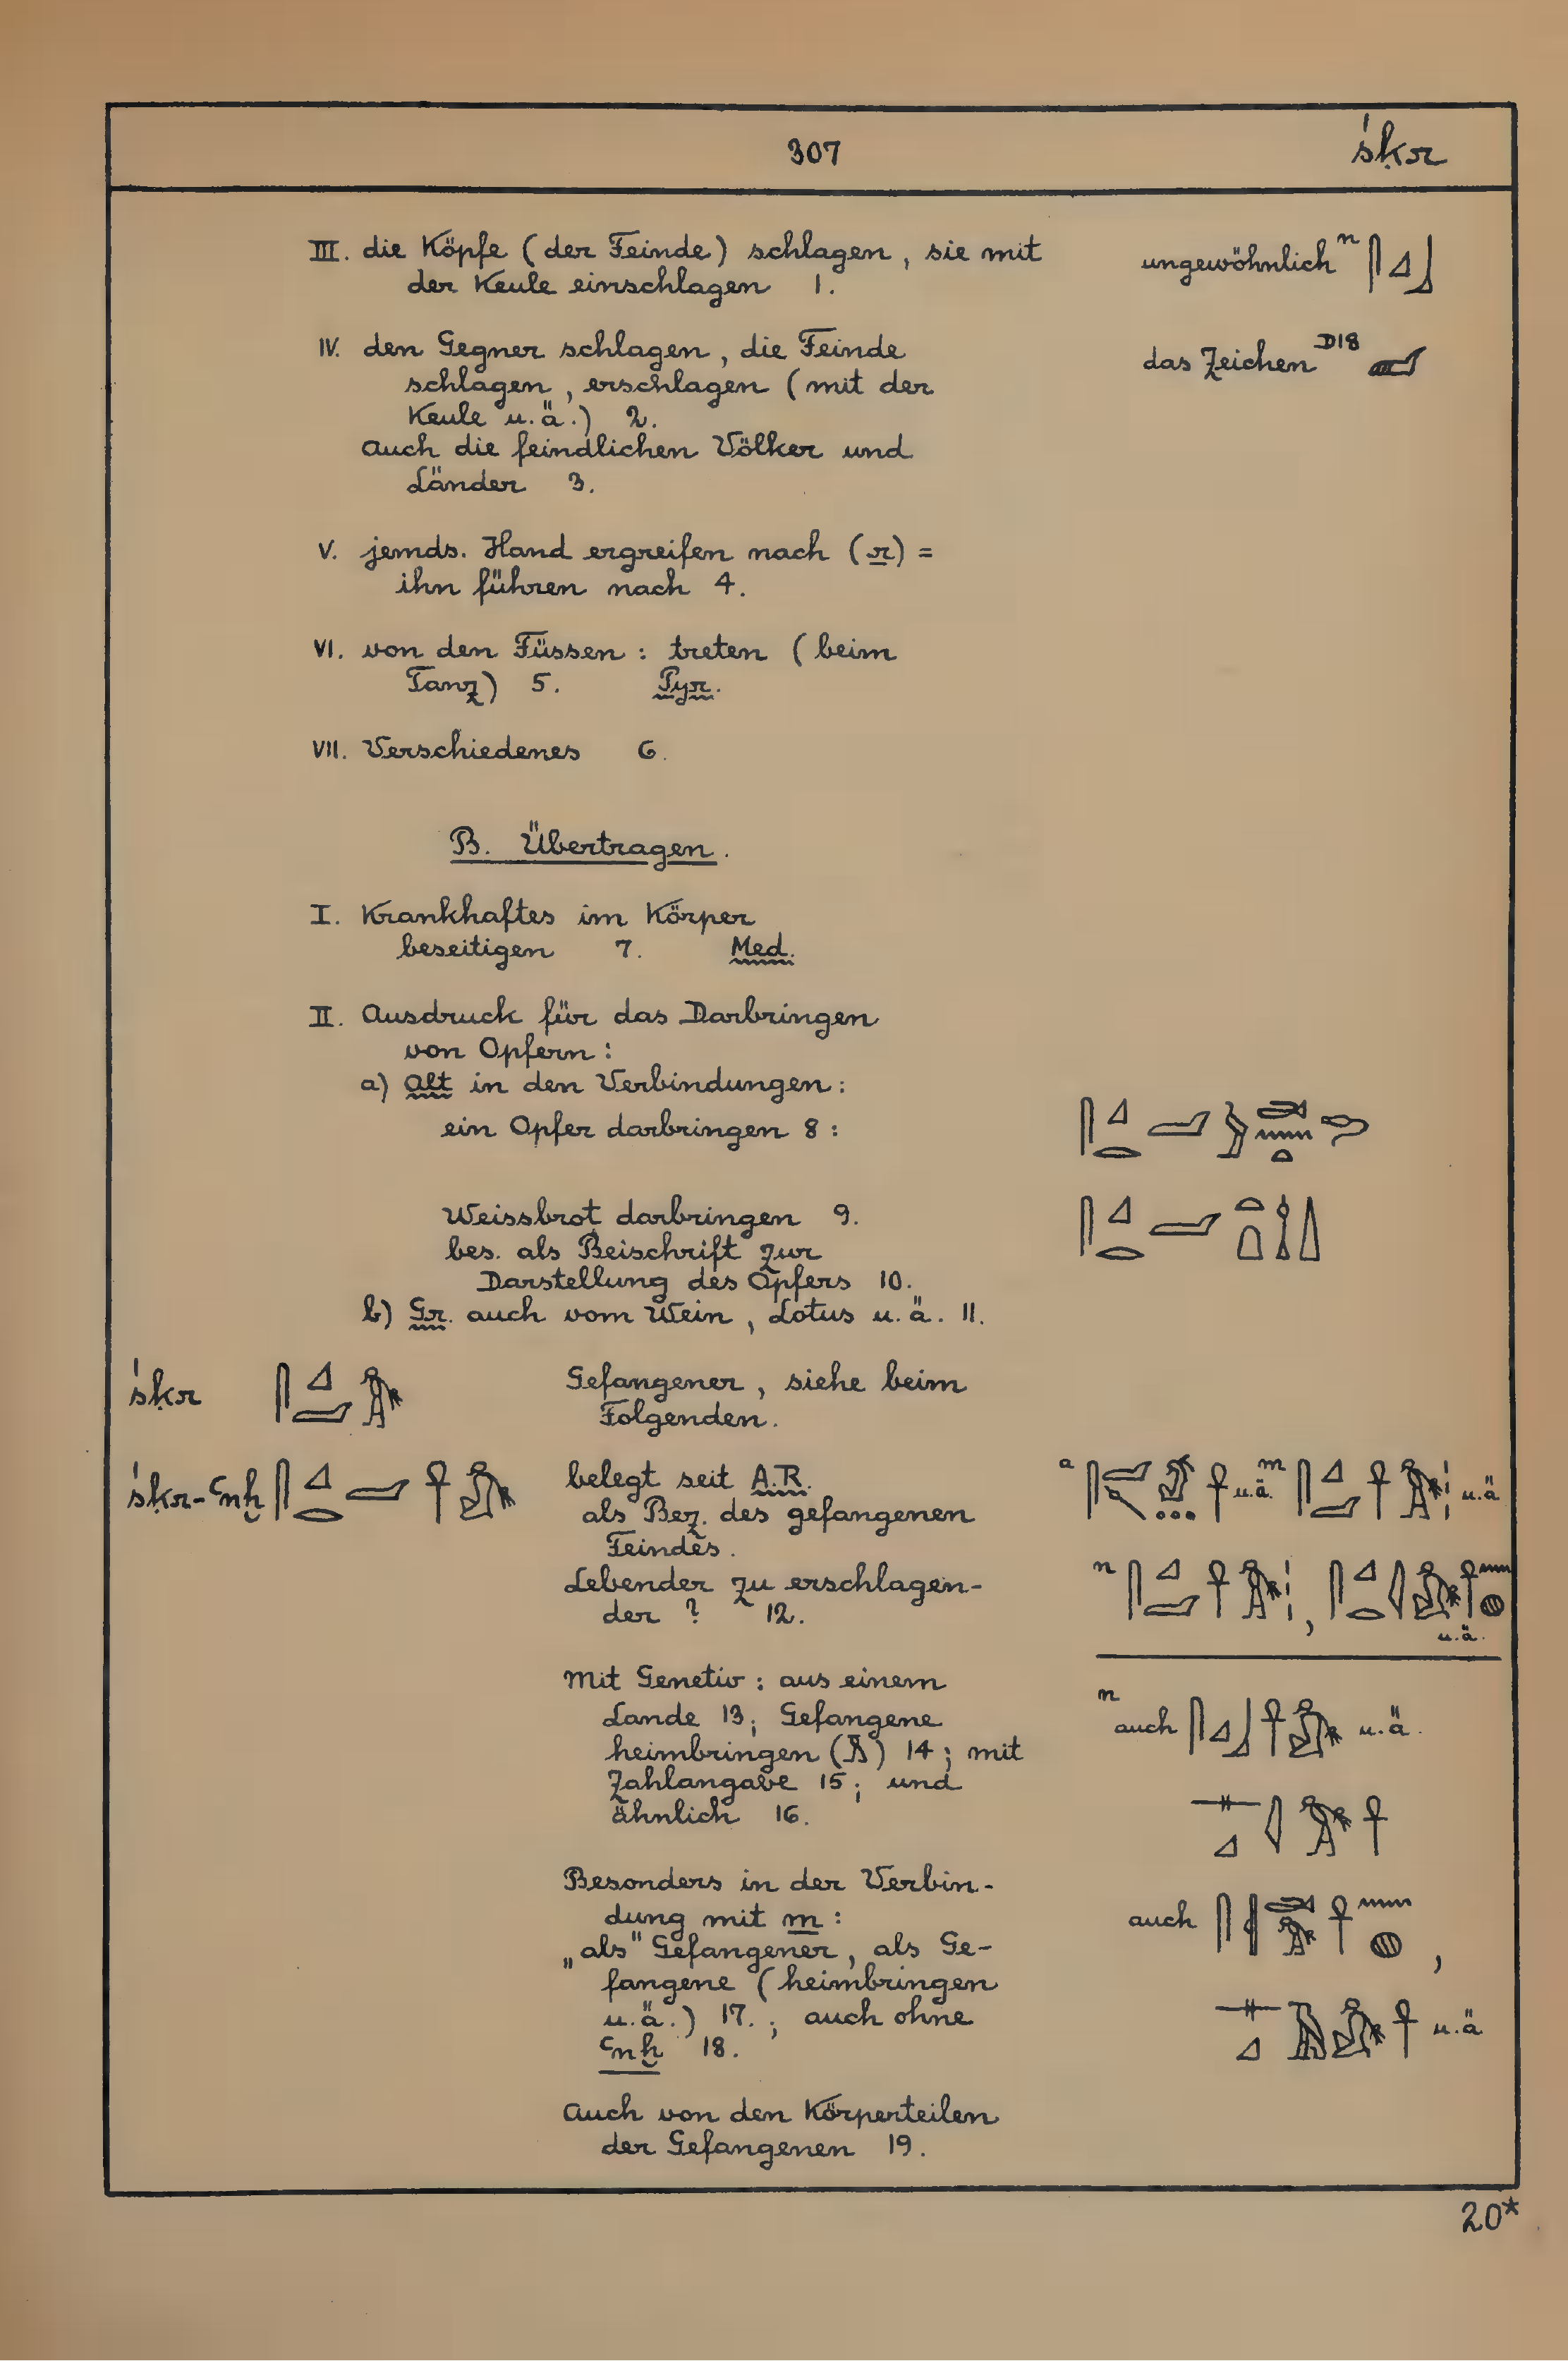 307 śḳr
III. die Köpfe (der Feinde) schlagen, sie mit
der Keule einschlagen 1.
ungewöhnlich n
IV. den Gegner schlagen, die Feinde
schlagen, erschlagen (mit der
Keule u.ä.) 2.
Auch die feindlichen Völker und
Länder 3.
das Zeichen D18
V. jemds. Hand ergreifen nach (r) =
ihn führen nach 4.
VI. von den Füssen: treten (beim
Tanz) 5. Pyr.
VII. Verschiedenes 6.
B. Übertragen.
I. Krankhaftes im Körper
beseitigen 7. Med.
II. Ausdruck für das Darbringen
von Opfern:
a) Alt in den Verbindungen:
ein Opfer darbringen 8:
Weissbrot darbringen 9.
bes. als Beischrift zur
Darstellung des Opfers 10.
b) Gr. auch vom Wein, Lotus u.ä. 11.
śḳr
Gefangener, siehe beim
Folgenden.
śḳr-ꜥnḫ
belegt seit A.R.
als Bez. des gefangenen
Feindes.
Lebender zu erschlagen-
der? 12.
a u.ä. m u.ä
n , u.ä.
Mit Genetiv: aus einem
Lande 13; Gefangene
heimbringen () 14; mit
Zahlangabe 15; und
ähnlich 16.
n auch u.ä.
Besonders in der Verbin-
dung mit m:
„als" Gefangener, als Ge-
fangene (heimbringen
u.ä.) 17.; auch ohne
ꜥnḫ 18.
auch ,
u.ä
Auch von den Körperteilen
der Gefangenen 19.
20*